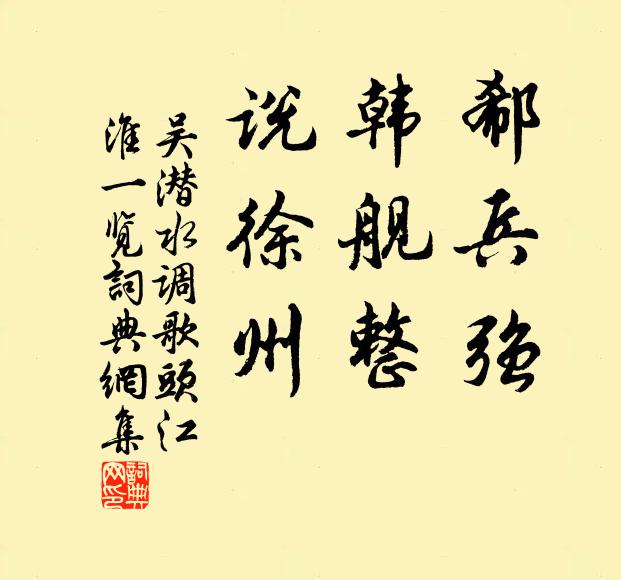 郗兵强
韩舰整
说徐州
吴潜水调歌头江
淮一览詞典網集
詞典网印